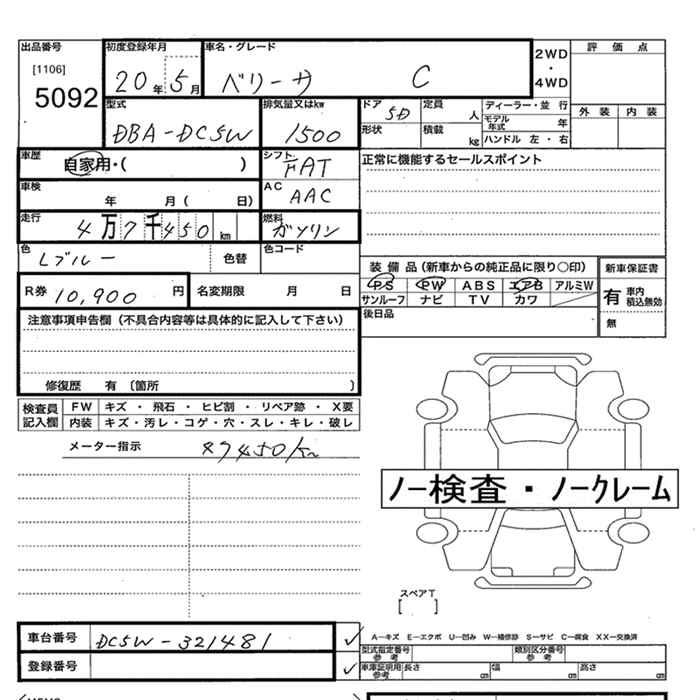 出品番号
[1106]
5092
初度登録年月
20年5月
車名・グレード
ベリーサ C
2WD
・
4WD
評価点
外装 内装
型式
DBA-DC5W
排気量又はkw
1500
ドア 5D
定員 人
形状
積載 kg
ディーラー・並行
モデル年式 年
ハンドル 左・右
車歴
自家用・( )
シフト
FAT
車検
年 月( 日)
AC
AAC
正常に機能するセールスポイント
走行
4万7千450km
燃料
ガソリン
色
Lブルー
色替
色コード
R券 10,900円
名変期限 月 日
装備品(新車からの純正品に限り○印)
PS PW ABS エアB アルミW
サンルーフ ナビ TV カワ
新車保証書
有 車内積込無効
無
後日品
注意事項申告欄(不具合内容等は具体的に記入して下さい)
修復歴 有〔箇所 〕
検査員記入欄
FW キズ・飛石・ヒビ割・リペア跡・X要
内装 キズ・汚レ・コゲ・穴・スレ・キレ・破レ
メーター指示
47450km
ノー検査・ノークレーム
スペアT
[ ]
車台番号 DC5W-321481
登録番号
A−キズ E−エクボ U−凹み W−補修跡 S−サビ C−腐食 XX−交換済
型式指定番号 参考
類別区分番号 参考
車庫証明用 参考 長さ cm 幅 cm 高さ cm